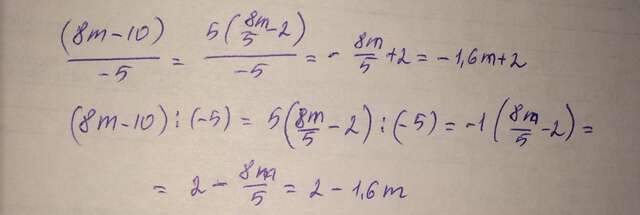 (8m-10)/-5 = 5(8m/5-2)/-5 = - 8m/5 +2 = -1,6m+2
(8m-10):(-5) = 5(8m/5-2):(-5) = -1(8m/5-2) =
= 2 - 8m/5 = 2 - 1,6m